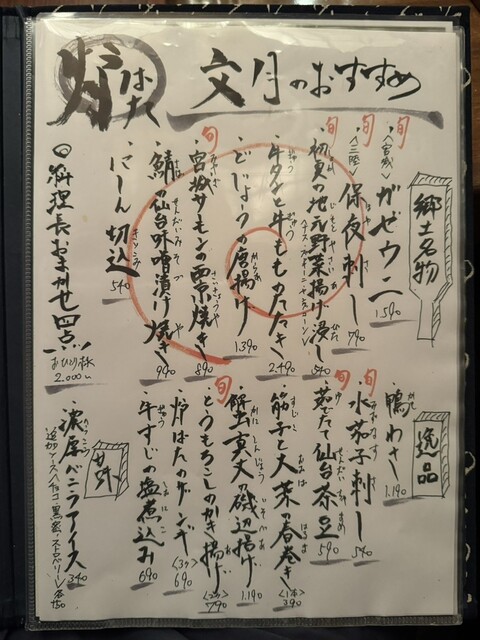 炉ばた
文月のおすすめ
郷土名物
旬
〈宮城〉
ガゼウニ 1590
旬
〈三陸〉
保夜刺し 790
旬
初夏の地元野菜揚げ浸し 540
牛タンと牛もものたたき 2.490
どじょうの唐揚げ 1390
旬
宮城サーモンの西京焼き 890
鯖の仙台味噌漬け焼き 990
にしん切込 540
料理長おまかせ四点
おひとり様
2.000
逸品
鴨わさ 1.190
旬
水茄子刺し 540
旬
茹でたて仙台茶豆 590
筋子と大葉の春巻き 〈1本〉 390
蟹真丈の磯辺揚げ 1.190
旬
とうもろこしのかき揚げ 〈2ヶ〉 790
炉ばたのザンギ 〈3ヶ〉 690
牛すじの塩煮込み 690
甘
濃厚バニラアイス 340
追加ソース/チョコ・黒蜜・ストロベリー/各50